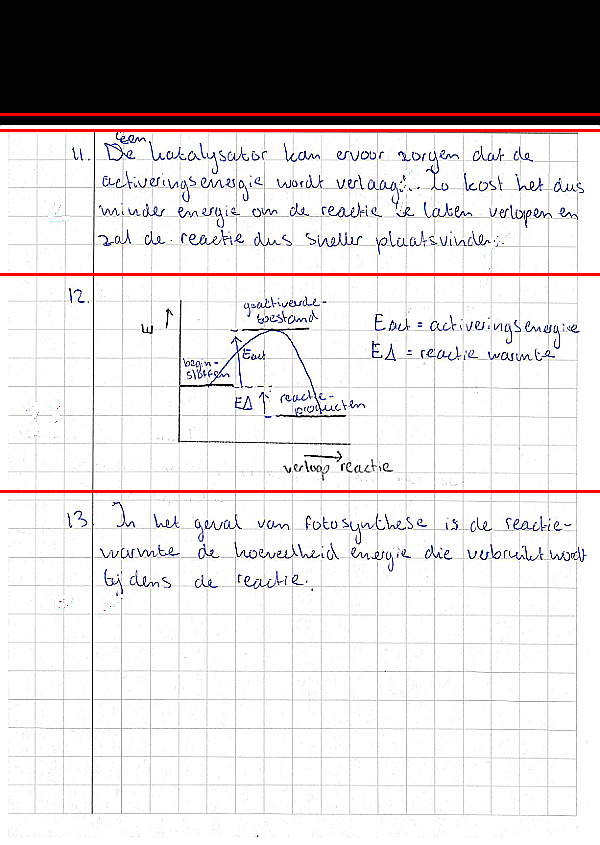 11. Een
De katalysator kan ervoor zorgen dat de
activeringsenergie wordt verlaagd. Zo kost het dus
minder energie om de reactie te laten verlopen en
zal de reactie dus sneller plaatsvinden.
12.
E ↑
geactiveerde-
toestand
begin-
stoffen
Eact
EΔ ↑ reactie-
producten
verloop reactie
Eact = activeringsenergie
EΔ = reactie warmte
13. In het geval van fotosynthese is de reactie-
warmte de hoeveelheid energie die verbruikt wordt
tijdens de reactie.